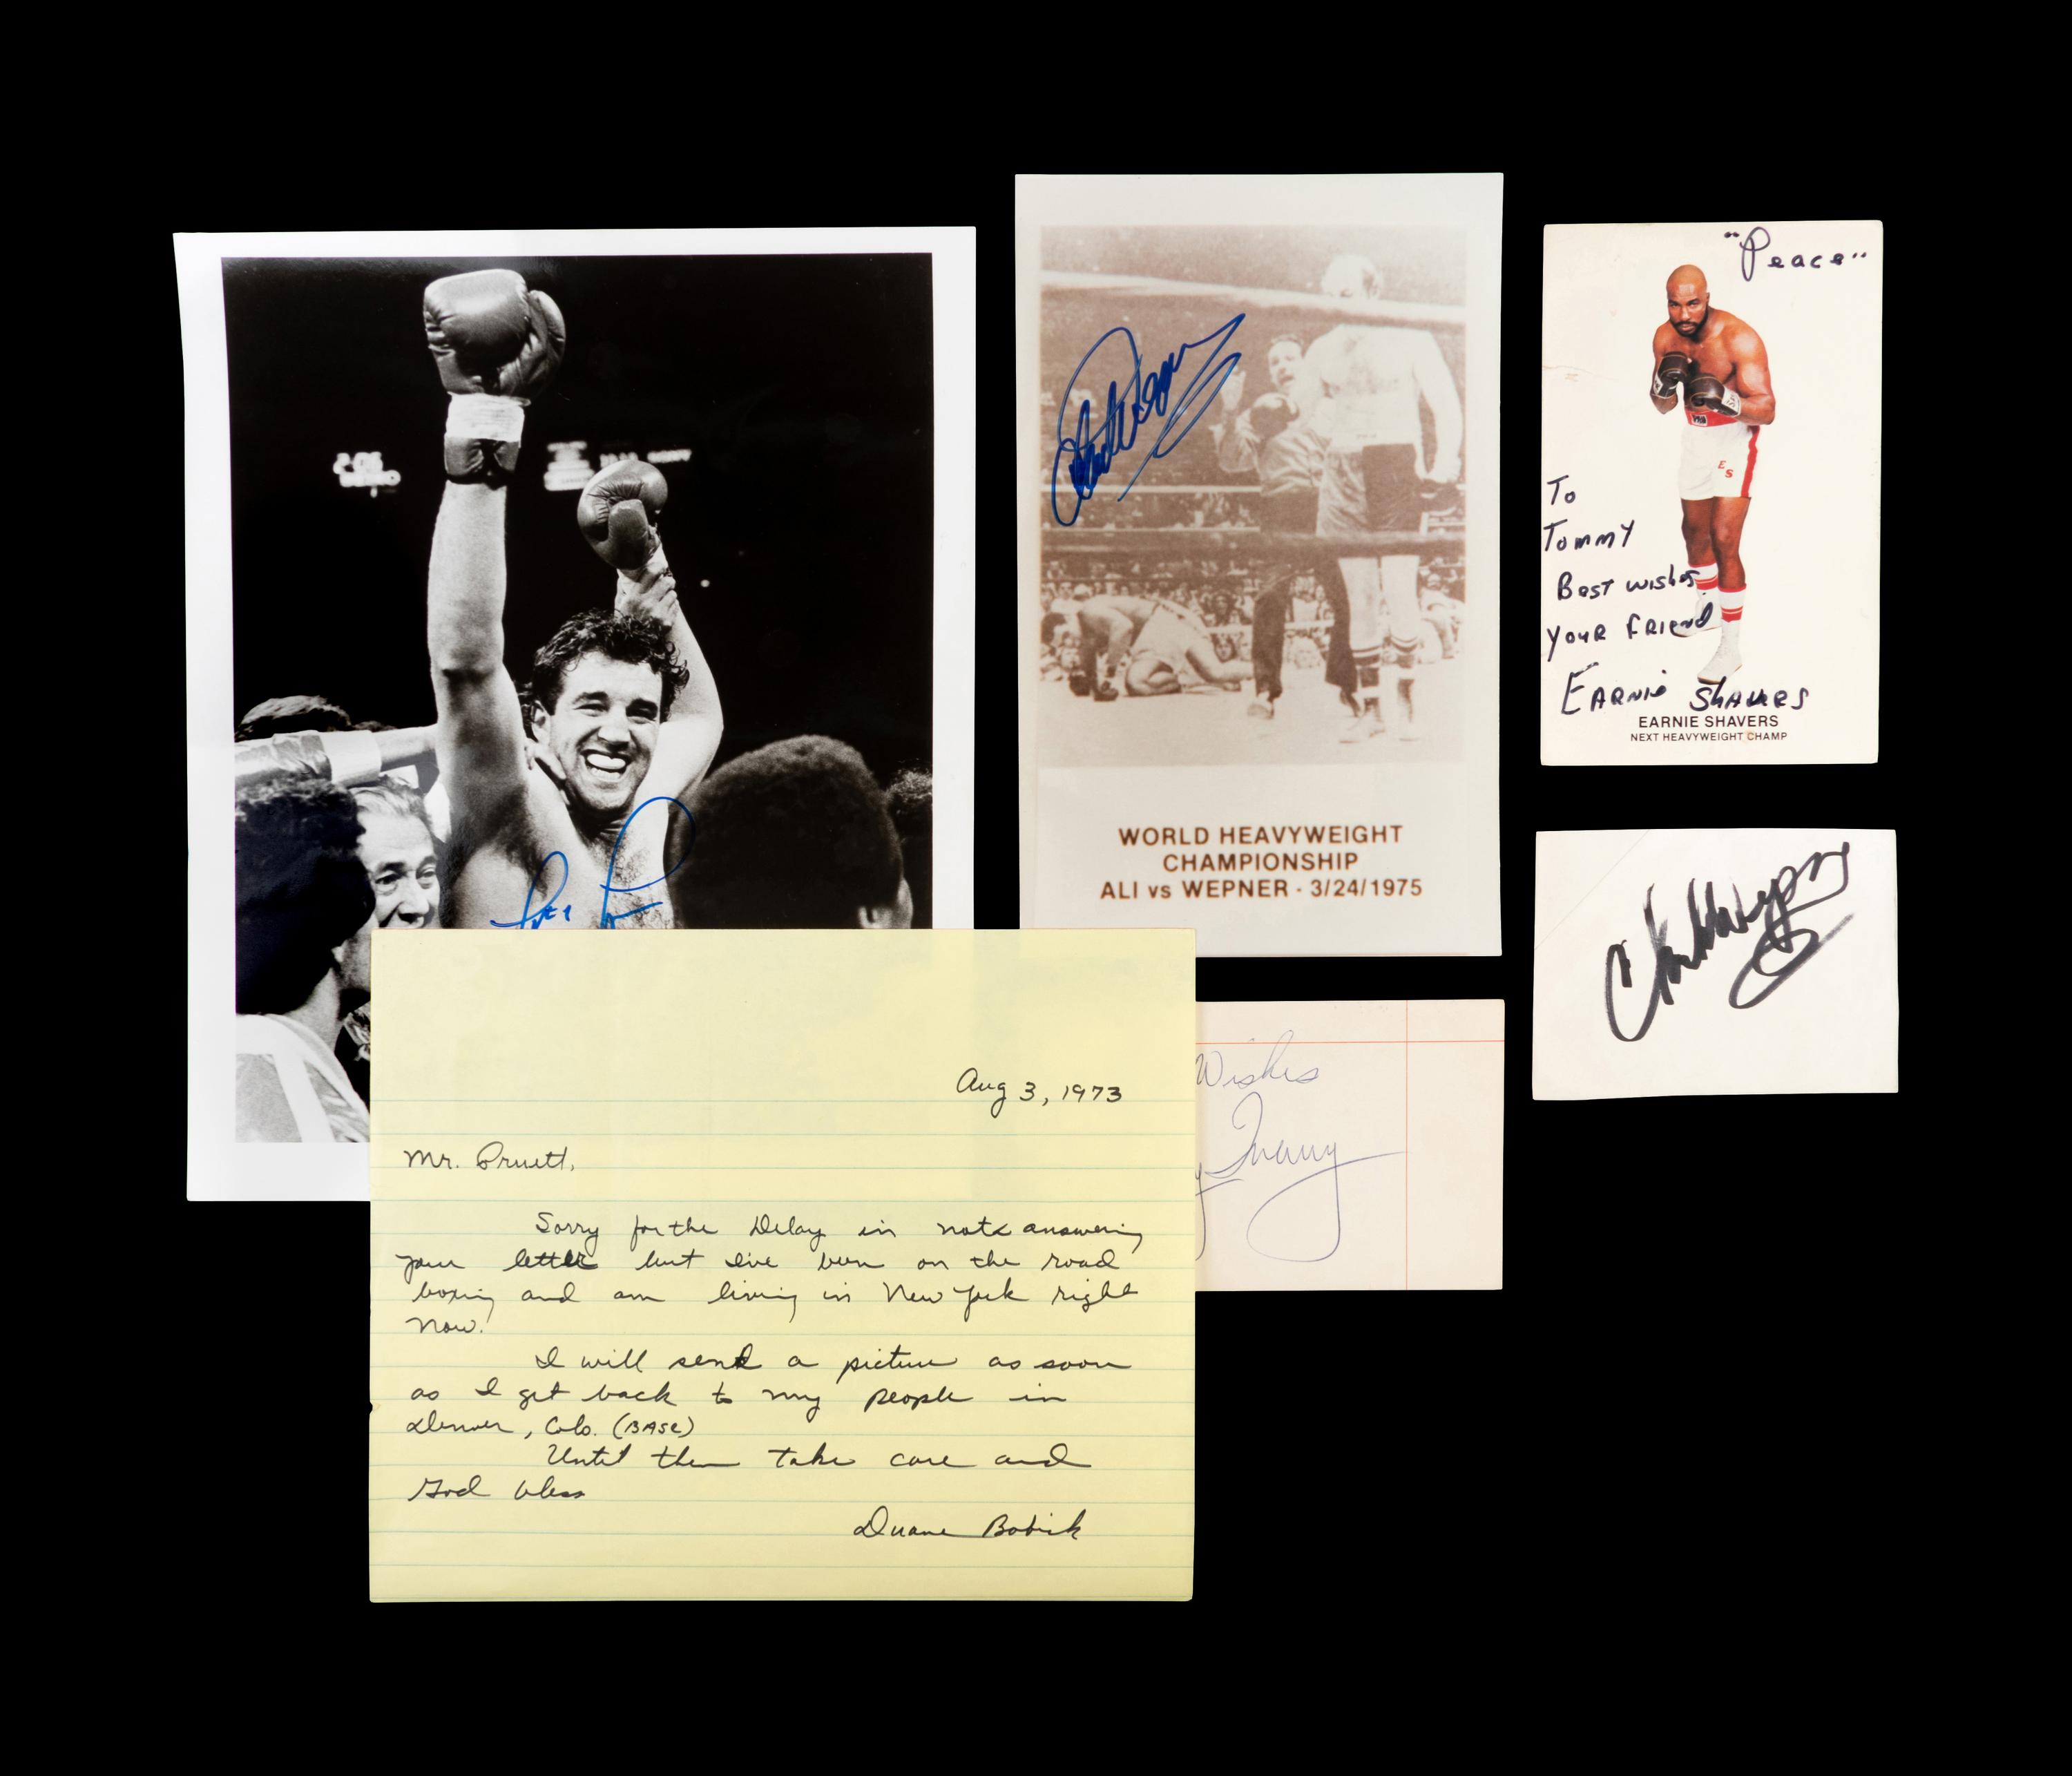 WORLD HEAVYWEIGHT
CHAMPIONSHIP
ALI vs WEPNER - 3/24/1975
"Peace"
To
Tommy
Best wishes
Your Friend
EARNIE SHAVERS
EARNIE SHAVERS
NEXT HEAVYWEIGHT CHAMP
ES
Chuck Wepner
Wishes
Aug 3, 1973
Mr. Pruett,
Sorry for the Delay in not answering
your letter but I've been on the road
boxing and am living in New York right
now.
I will send a picture as soon
as I get back to my people in
Denver, Colo. (BASE)
Until then take care and
God bless
Duane Bobick